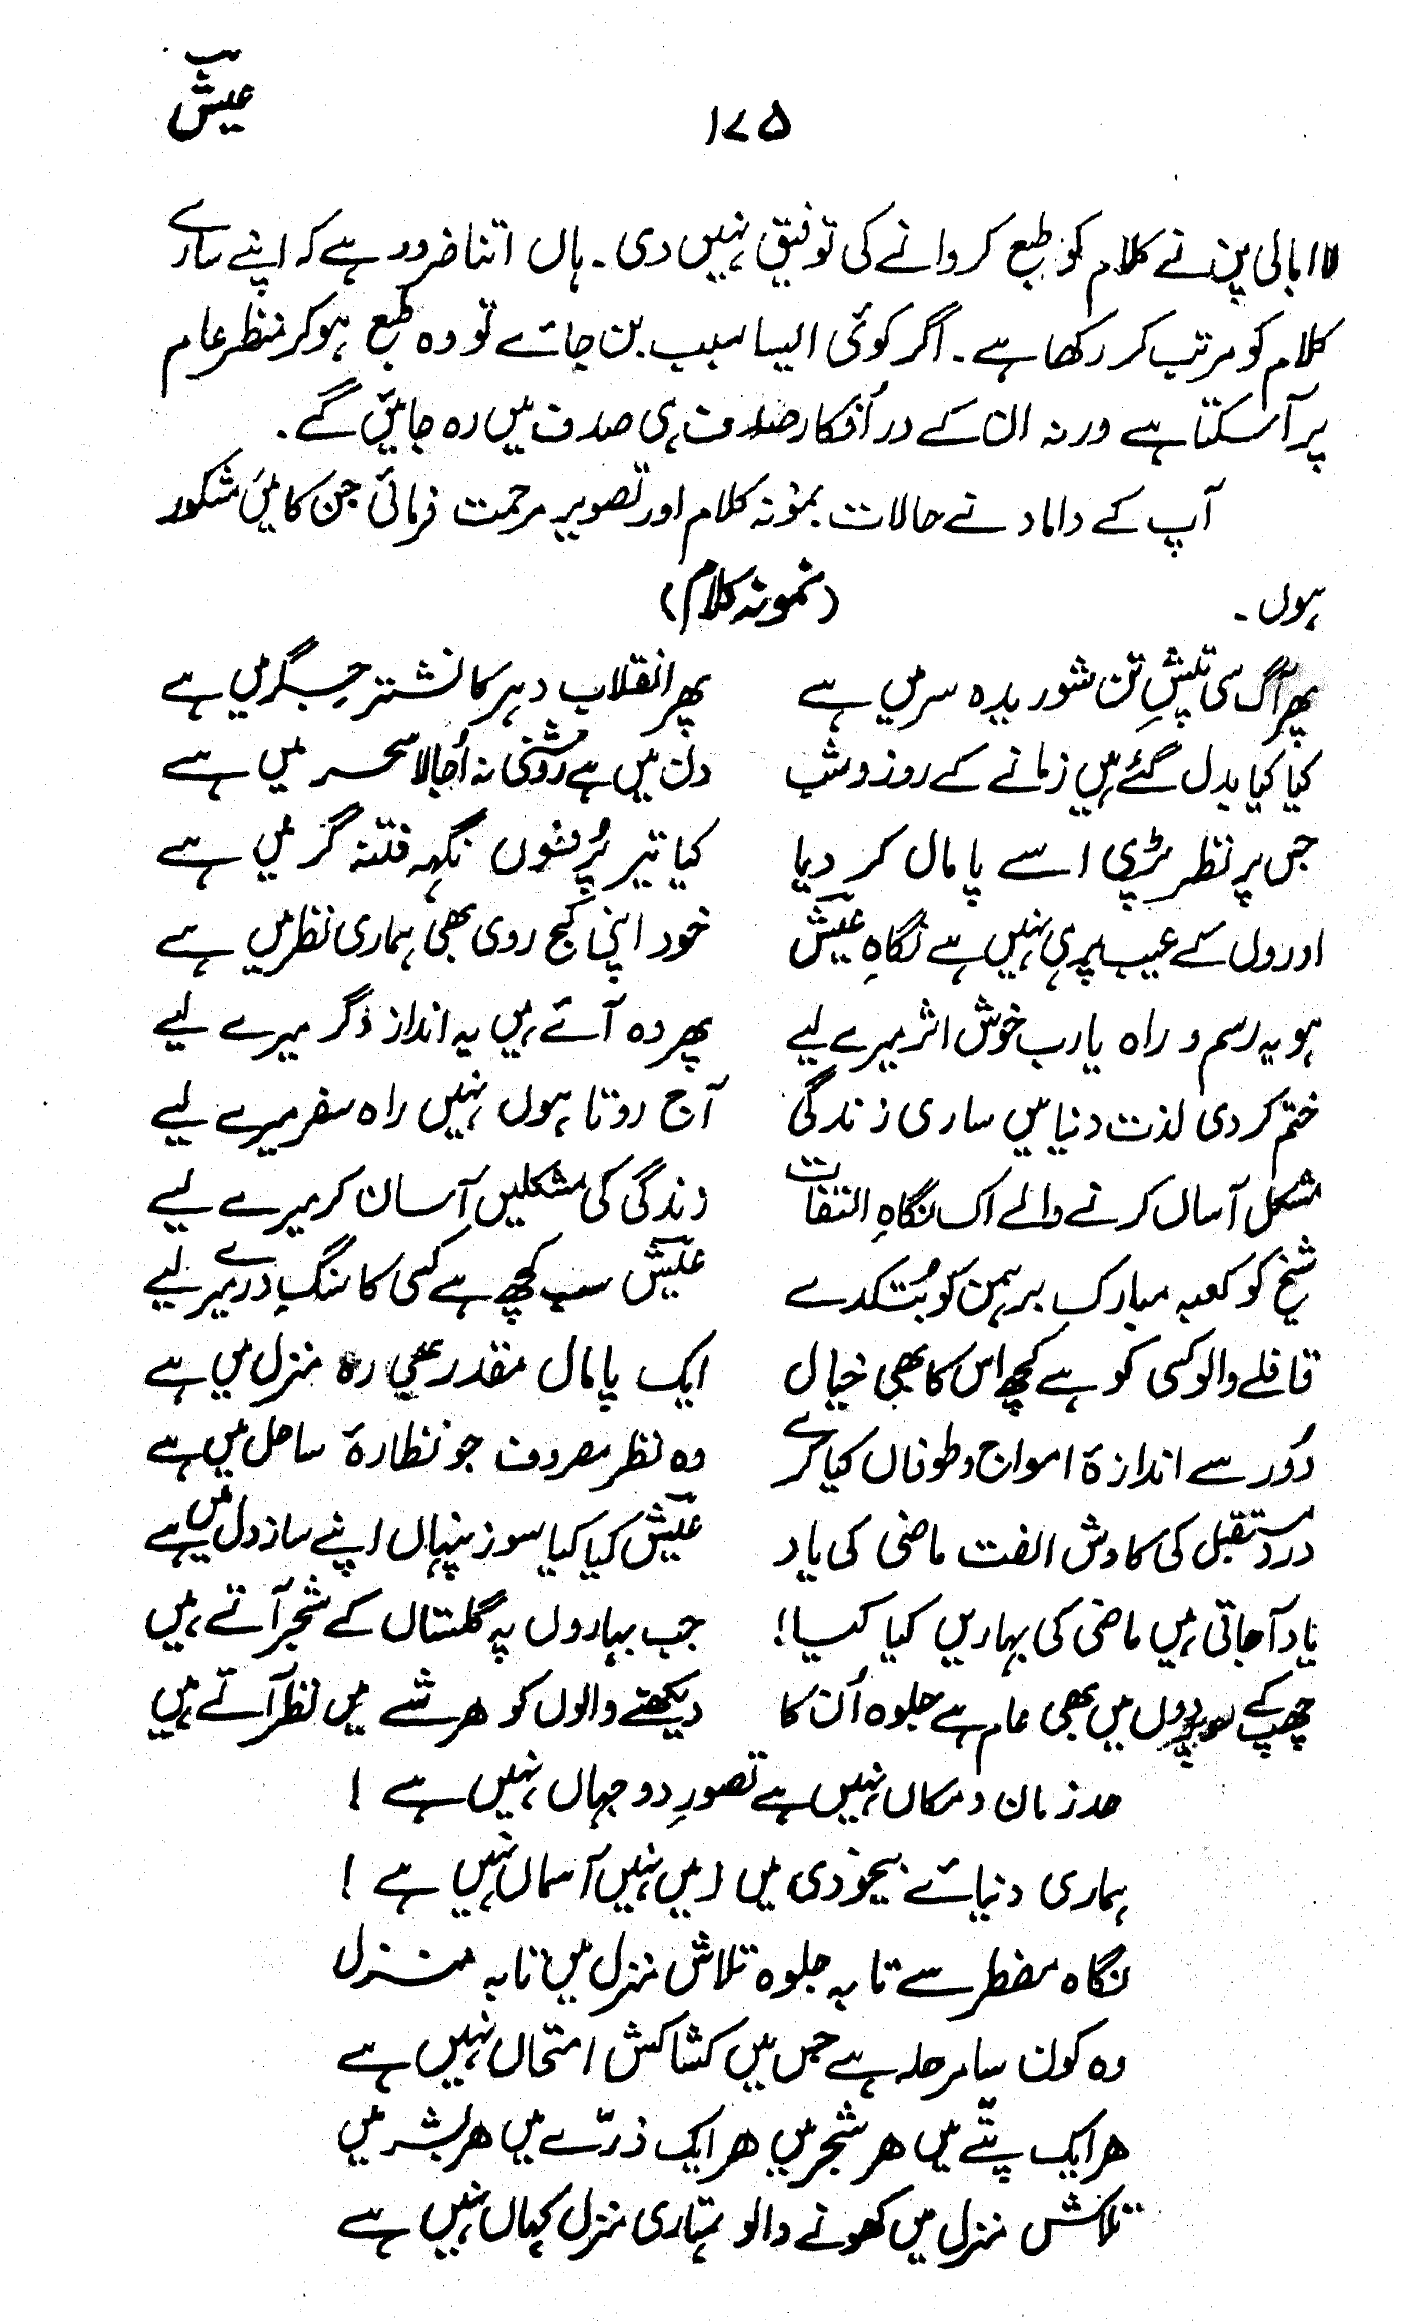 عیش
۱۷۵
لاابالی پن نے کلام کو طبع کروانے کی توفیق نہیں دی۔ ہاں اتنا ضرور ہے کہ اپنے سارے
کلام کو مرتب کر رکھا ہے۔ اگر کوئی ایسا سبب بن جائے تو وہ طبع ہو کر منظر عام
پر آ سکتا ہے ورنہ ان کے در اُفکار صدف ہی صدف میں رہ جائیں گے۔
آپ کے داماد نے حالات۔ نمونہ کلام اور تصویر مرحمت فرمائی جن کا میں مشکور
ہوں۔
(نمونہ کلام)
پھر آگ سی تپشِ تن شوریدہ سر میں ہے پھر انقلاب دہر کا نشتر جگر میں ہے
کیا کیا بدل گئے ہیں زمانے کے روز و شب دن میں ہے روشنی نہ اُجالا سحر میں ہے
جس پر نظر پڑی اسے پامال کر دیا کیا تیر پُر فسوں نگہہ فتنہ گر میں ہے
اوروں کے عیب پر ہی نہیں ہے نگاہِ عیش خود اپنی کج روی بھی ہماری نظر میں ہے
ہو یہ رسم و راہ یارب خوش اثر میرے لیے پھر وہ آئے ہیں بہ انداز دگر میرے لیے
ختم کر دی لذت دنیا میں ساری زندگی آج روتا ہوں نہیں راہ سفر میرے لیے
مشکل آساں کرنے والے اک نگاہِ التفات زندگی کی مشکلیں آسان کر میرے لیے
شیخ کو کعبہ مبارک برہمن کو بُتکدے عیش سب کچھ ہے کسی کا سنگِ در میرے لیے
قافلے والو کسی کو ہے کچھ اس کا بھی خیال ایک پامال مقدر بھی رہ منزل میں ہے
دُور سے اندازۂ امواج و طوفاں کیا کرے وہ نظر مصروف جو نظارۂ ساحل میں ہے
درد مستقبل کی کاوش الفت ماضی کی یاد عیش کیا کیا سوز پنہاں اپنے ساز دل میں ہے
یاد آ جاتی ہیں ماضی کی بہاریں کیا کیا! جب بہاروں پہ گلستاں کے شجر آتے ہیں
چھپ کے سو پردوں میں بھی عام ہے جلوہ اُن کا دیکھنے والوں کو ہر شے میں نظر آتے ہیں
حد زمان و مکاں نہیں ہے تصورِ دو جہاں نہیں ہے!
ہماری دنیائے بیخودی میں زمیں نہیں آسماں نہیں ہے!
نگاہ مضطر سے تا بہ جلوہ تلاش منزل میں تا بہ منزل
وہ کون سا مرحلہ ہے جس میں کشاکش امتحاں نہیں ہے
ہر ایک پتّے میں ہر شجر میں ہر ایک ذرّے میں ہر بشر میں
تلاش منزل میں کھونے والو تمہاری منزل کہاں نہیں ہے